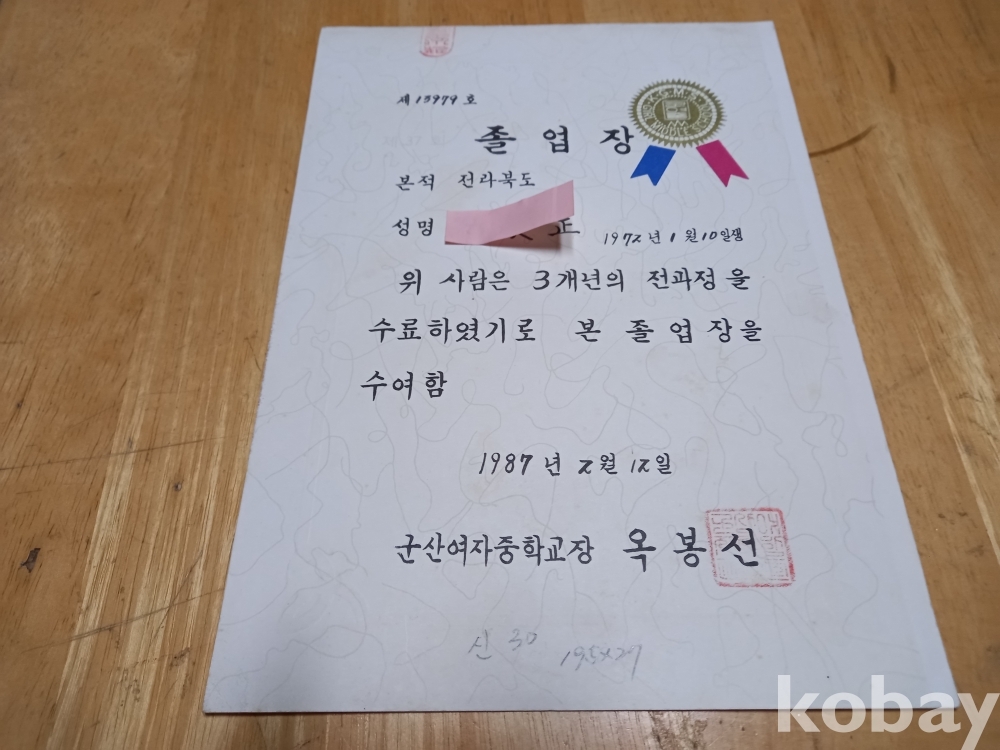 제 13979 호
졸 업 장
본적 전라북도
성명 正 1972년 1월 10일생
위 사람은 3개년의 전과정을
수료하였기로 본 졸업장을
수여함
1987년 2월 12일
군산여자중학교장 옥봉선
신 30 19.5×27
kobay